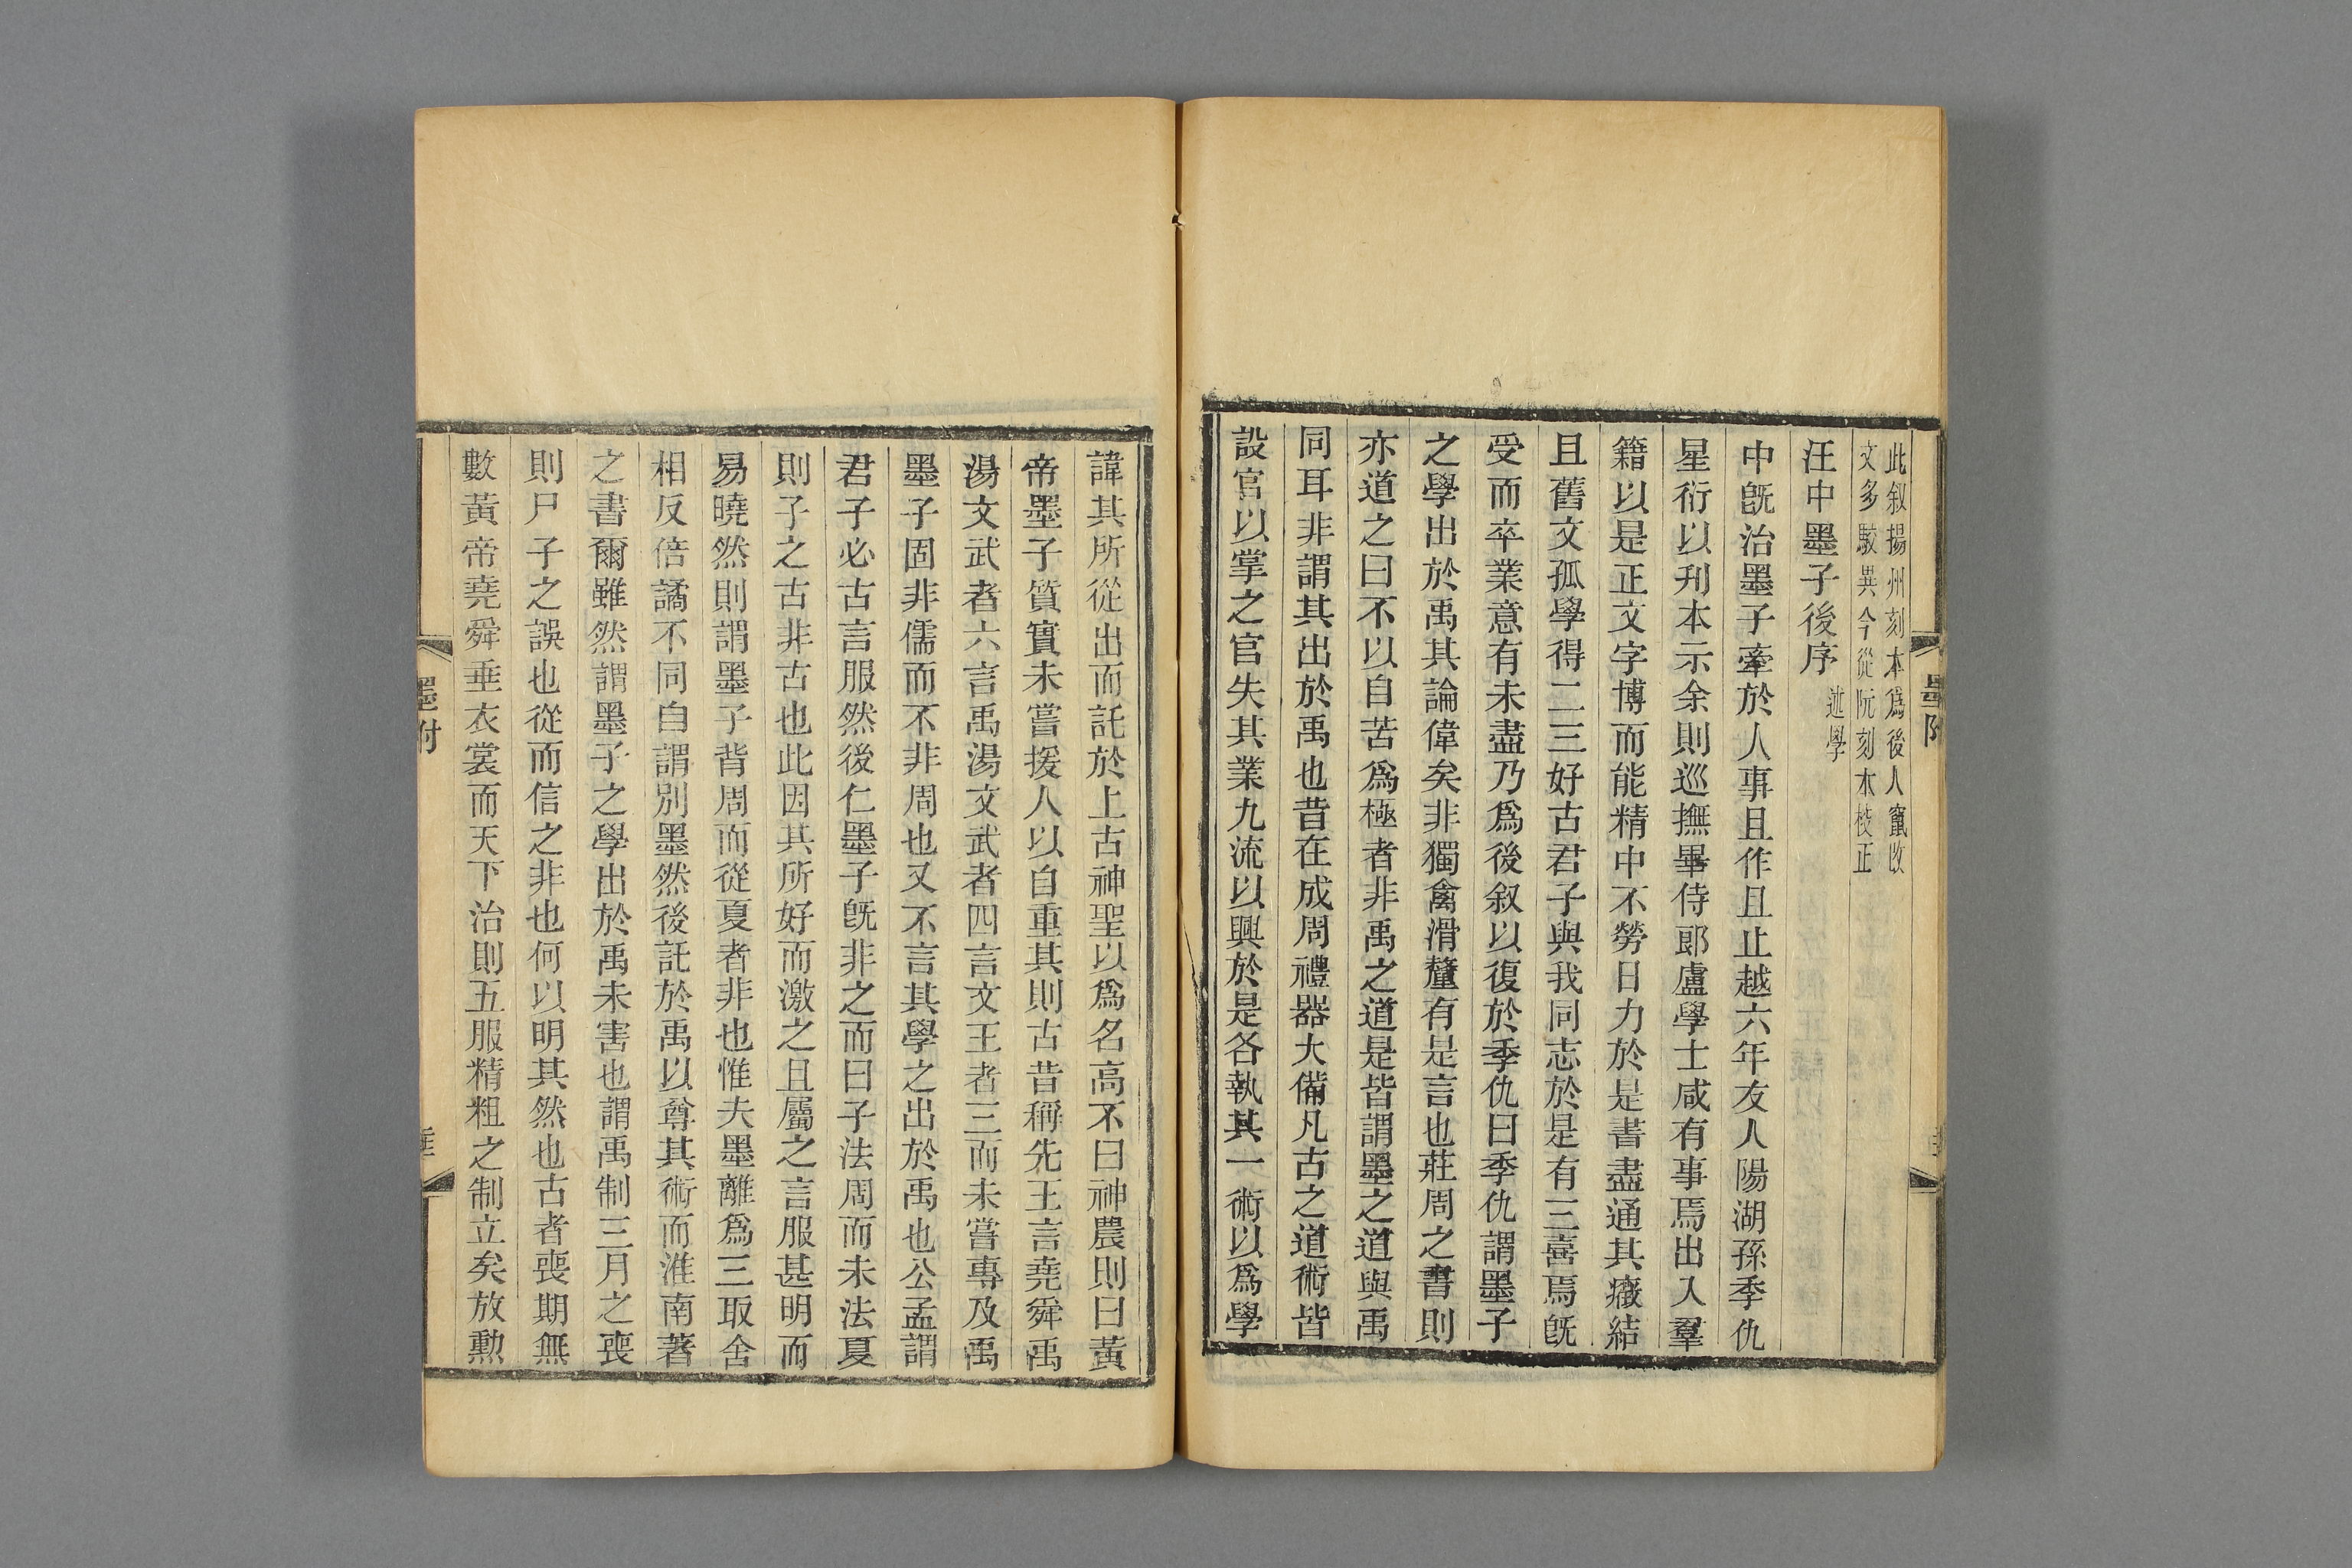 此叙揚州刻本爲後人竄改
文多駮異今從阮刻本校正
汪中墨子後序 述學
中旣治墨子牽於人事且作且止越六年友人陽湖孫季仇
星衍以刋本示余則巡撫畢侍郎盧學士咸有事焉出入羣
籍以是正文字博而能精中不勞日力於是書盡通其癥結
且舊文孤學得二三好古君子與我同志於是有三喜焉旣
受而卒業意有未盡乃爲後叙以復於季仇曰季仇謂墨子
之學出於禹其論偉矣非獨禽滑釐有是言也莊周之書則
亦道之曰不以自苦爲極者非禹之道是皆謂墨之道與禹
同耳非謂其出於禹也昔在成周禮器大備凡古之道術皆
設官以掌之官失其業九流以興於是各執其一術以爲學
諱其所從出而託於上古神聖以爲名高不曰神農則曰黃
帝墨子質實未嘗援人以自重其則古昔稱先王言堯舜禹
湯文武者六言禹湯文武者四言文王者三而未嘗專及禹
墨子固非儒而不非周也又不言其學之出於禹也公孟謂
君子必古言服然後仁墨子旣非之而曰子法周而未法夏
則子之古非古也此因其所好而激之且屬之言服甚明而
易曉然則謂墨子背周而從夏者非也惟夫墨離爲三取舍
相反倍譎不同自謂別墨然後託於禹以尊其術而淮南著
之書爾雖然謂墨子之學出於禹未害也謂禹制三月之喪
則尸子之誤也從而信之非也何以明其然也古者喪期無
數黃帝堯舜垂衣裳而天下治則五服精粗之制立矣放勳
墨附